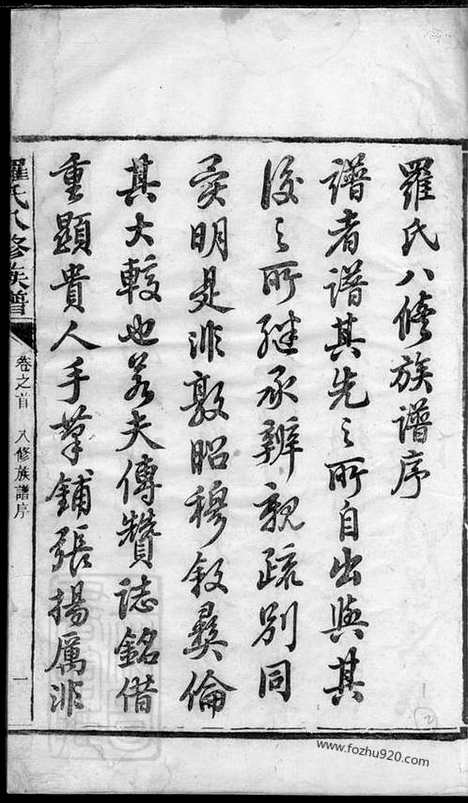 羅氏八修族譜序
譜者譜其先之所自出與其
後之所繼承辨親疏別同
異明是非敦昭穆敘彝倫
其大較也若夫傳贊誌銘借
重顯貴人手筆鋪張揚厲非
羅氏八修族譜
卷之首 八修族譜序
一
2
www.fozhu920.com